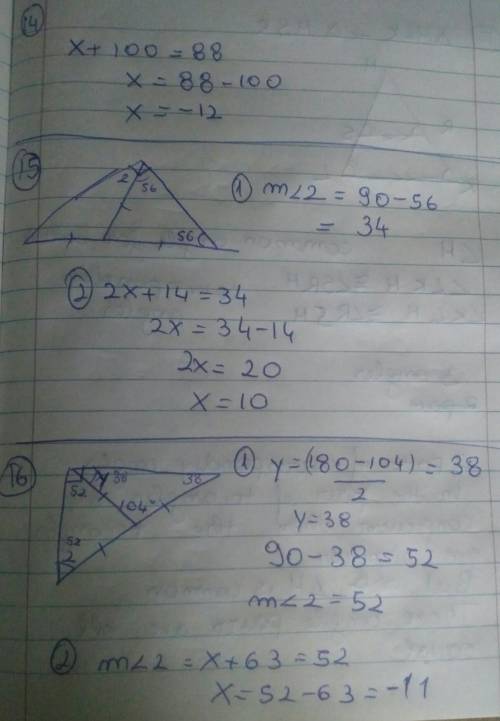 14
x + 100 = 88
x = 88 - 100
x = -12
15
2 56
56
① m∠2 = 90 - 56
= 34
② 2x + 14 = 34
2x = 34 - 14
2x = 20
x = 10
16
y 38 38
52
104°
52
2
① y = (180 - 104) / 2 = 38
y = 38
90 - 38 = 52
m∠2 = 52
② m∠2 = x + 63 = 52
x = 52 - 63 = -11